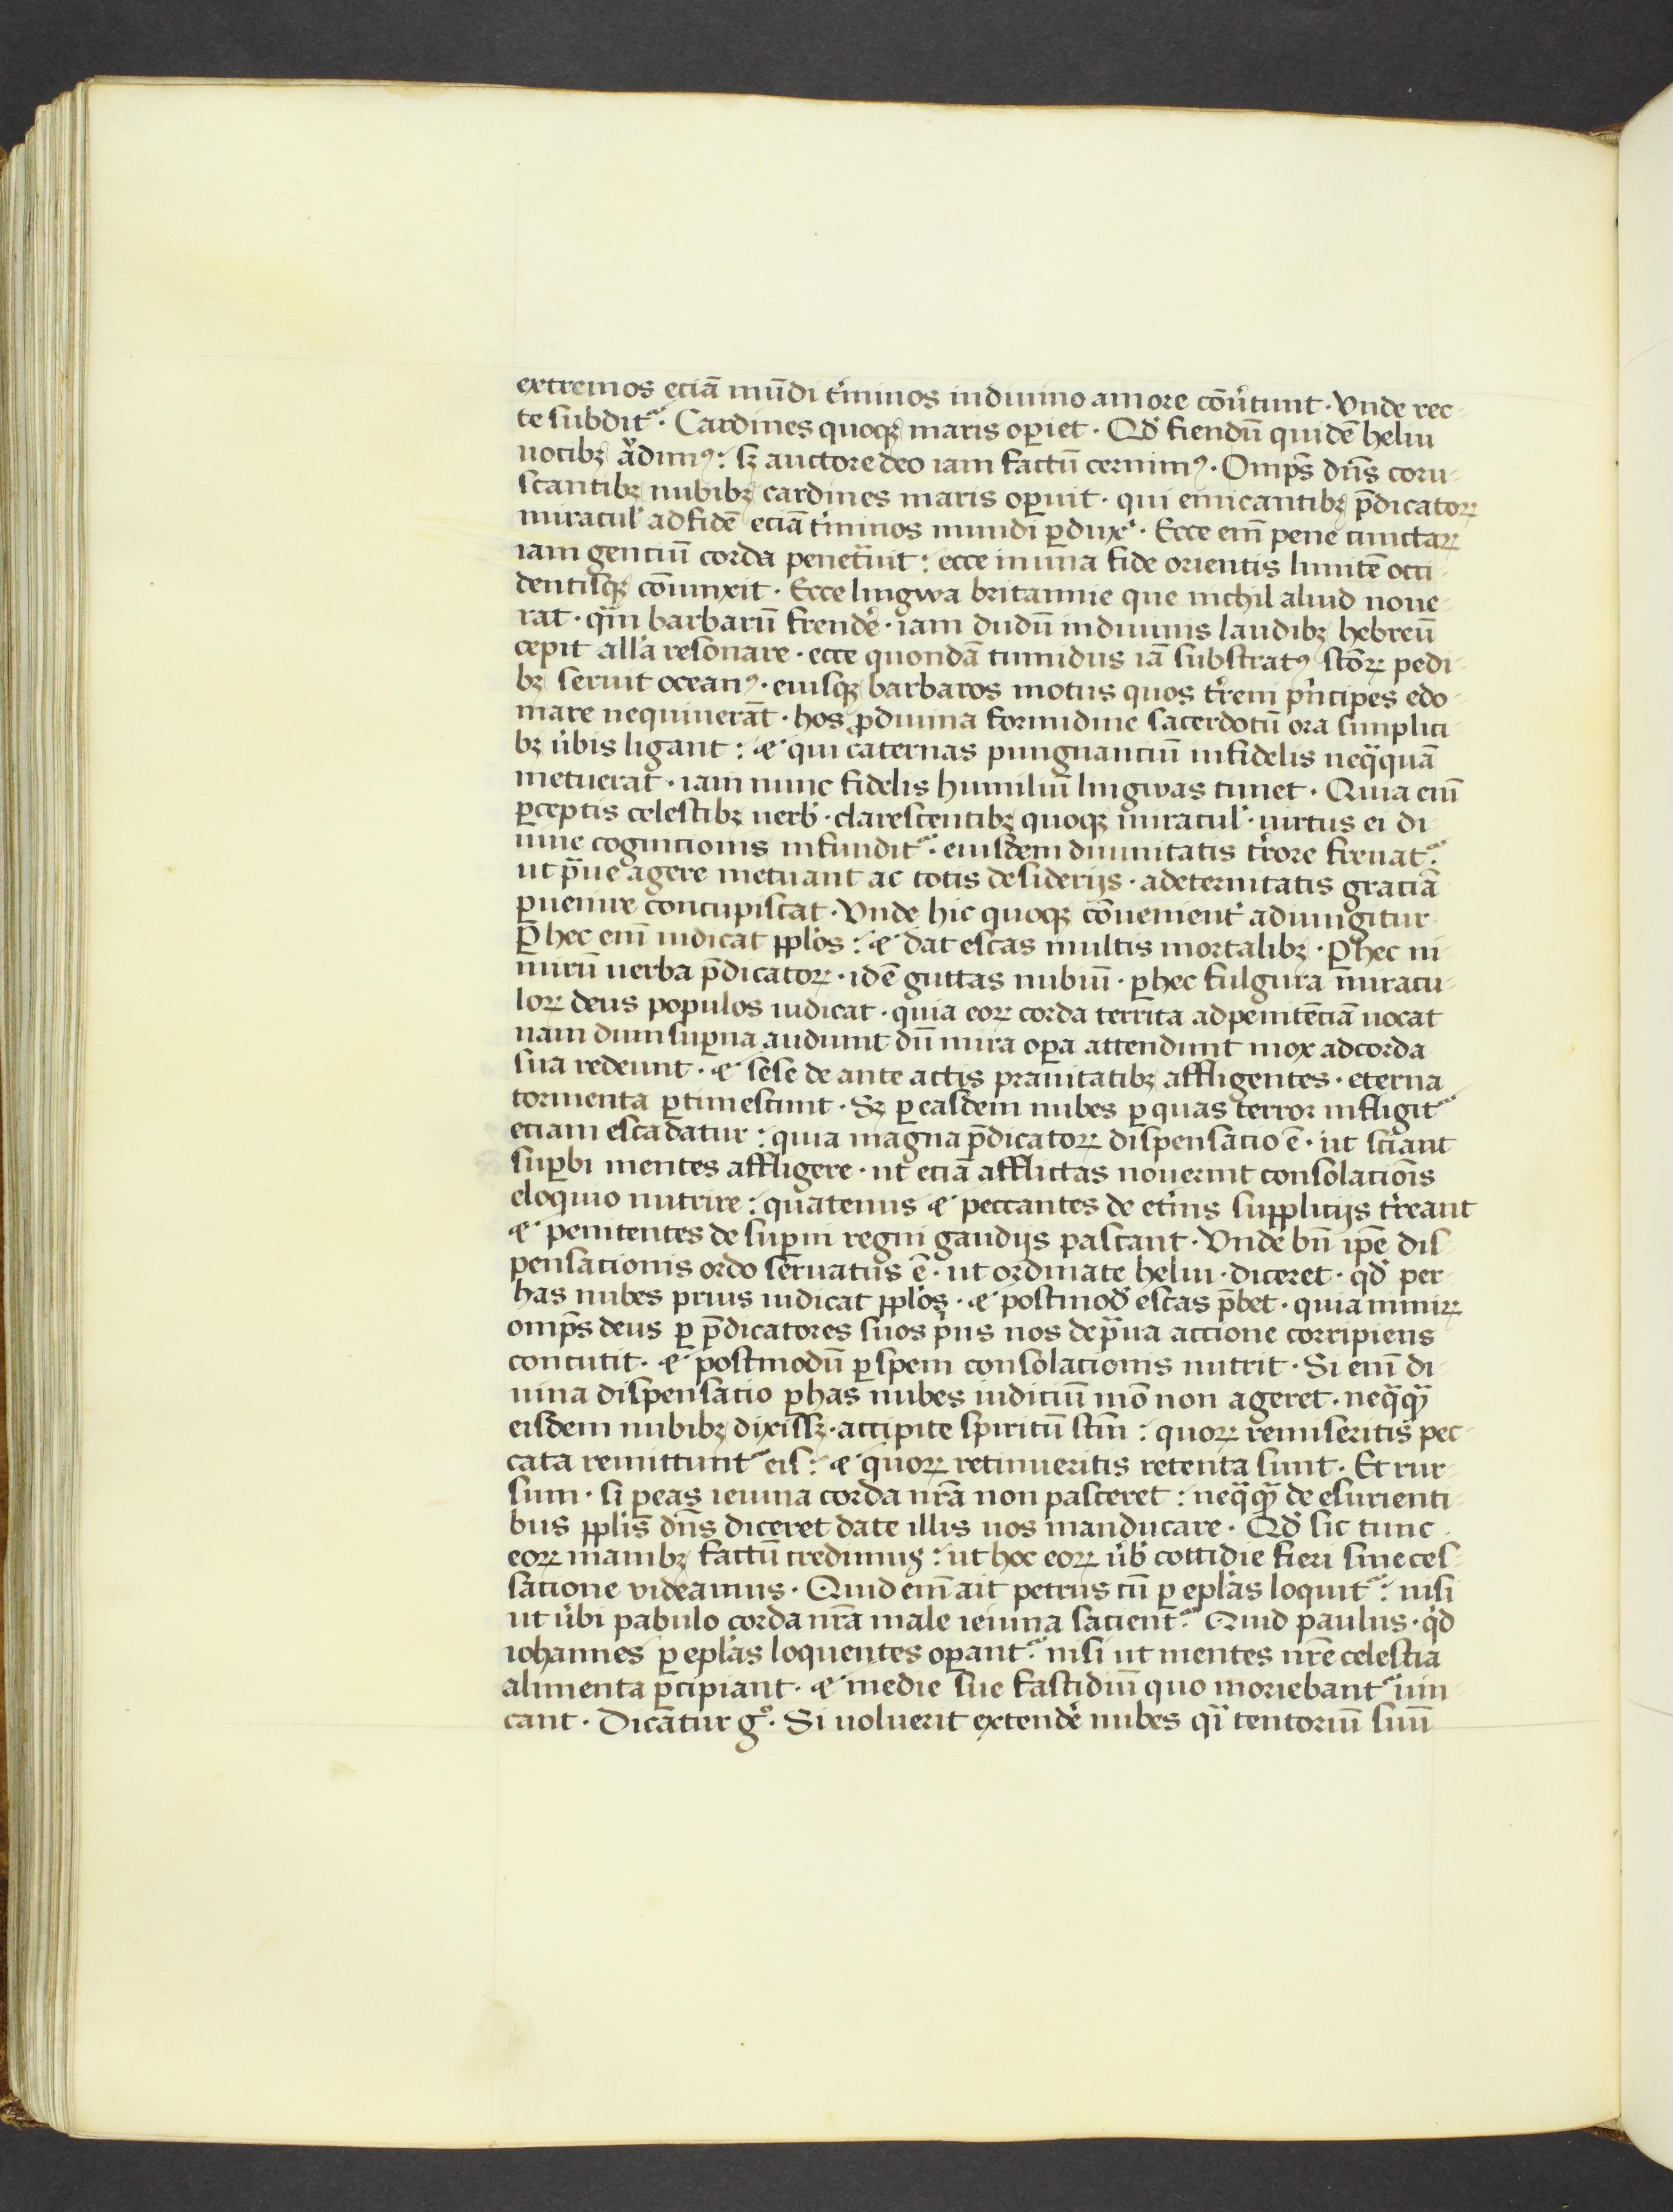 extremos eciā mūdi t̾minos indiuino amore cōu̾tunt · Vnde rec-
te subdit᷑ · Cardines quoqꝫ maris oꝑiet · Qđ fiendū quidē heliu
uocibꝫ audimꝰ : sꝫ auctore deo iam factū cernimꝰ · Omp̄s dn̄s coru-
scantibꝫ nubibꝫ cardines maris oꝑuit · qui emicantibꝫ p̄dicatoꝝ
miracul̾ ad fidē eciā t̾minos mundi ꝑdux̾ · Ecce em̄ pene cunctaꝝ
iam genciū corda penetᷓuit : ecce in una fide orientis limitē occi-
dentisqꝫ cōiunxit · Ecce lingwa britannie que nichil aliud noue-
rat · qᷓm barbarū frende᷑ · iam dudū indiuinis laudibꝫ hebreū
cepit all̾a resonare · ecce quondā tumidus iā substratꝰ sc̄oꝝ pedi-
bꝫ seruit oceanꝰ · eiusqꝫ barbaros motus quos t̾reni pⁱncipes edo-
mare nequiuerāt · hos ꝓ diuina formidine sacerdotū ora simplici-
bꝫ u̾bis ligant : ⁊ qui caternas pungnanciū infidelis neqᷓquā
metuerat · iam nunc fidelis humiliū lingwas timet · Quia em̄
ꝑceptis celestibꝫ uerb̾ · clarescentibꝫ quoqꝫ miracul̾ · uirtus ei di-
uine cognicionis infundit᷑ · eiusdem diuinitatis t̾rore frenat᷑ :
ut pᷓue agere metuant ac totis desiderijs · ad eternitatis graciā
ꝑuenire concupiscat · Vnde hic quoqꝫ cōuenient̾ adiungitur
Ꝑ hec em̄ iudicat ppl̾os : ⁊ dat escas multis mortalibꝫ · Ꝑ hec ni-
mirū uerba p̄dicatoꝝ · idē guttas nubiū · ꝑ hec fulgura miracu-
loꝝ deus populos iudicat · quia eoꝝ corda territa ad penitēciā uocat
nam dum suꝑna audiunt dū mira oꝑa attendunt mox ad corda
sua redeunt · ⁊ sese de ante actis prauitatibꝫ affligentes · eterna
tormenta ꝑtimescunt · Sꝫ ꝑ easdem nubes ꝑ quas terror infligit᷑
eciam esca datur : quia magna p̄dicatoꝝ dispensacio ē · ut sciant
suꝑbi mentes affligere · ut eciā afflictas nouerint consolacion̄s
eloquio nutrire : quatenus ⁊ peccantes de et̾nis supplicijs t̾reant
⁊ penitentes de suꝑni regni gaudijs pascant · Vnde bn̄ ip̄e dis-
pensacionis ordo seruatus ē · ut ordinate heliu · diceret · qđ per
has nubes prius iudicat ppl̾os · ⁊ postmođ escas p̄bet · quia nimiꝝ
omp̄s deus ꝑ p̄dicatores suos pⁱus nos de pᷓua accione corripiens
concutit · ⁊ postmodū ꝑ spem consolacionis nutrit · Si em̄ di-
uina dispensacio ꝑ has nubes iudiciū mō non ageret · neqᷓqᷓ
eisdem nubibꝫ dixissꝫ · accipite spiritū sc̄m : quoꝝ remiseritis pec-
cata remittunt᷑ eis : ⁊ quoꝝ retinueritis retenta sunt · Et rur-
sum · si ꝑ eas ieiuna corda nr̄a non pasceret : neqᷓqᷓ de esurienti-
bus ppl̾is dn̄s diceret date illis uos manducare · Qđ sic tunc
eoꝝ manibꝫ factū credimus : ut hoc eoꝝ u̾b̾ cottidie fieri sine ces-
sacione videamus · Quid em̄ ait petrus cū ꝑ epl̾as loquit᷑ : nisi
ut u̾bi pabulo corda nr̄a male ieiuna sacient᷑ Quid paulus · qⁱd
iohannes ꝑ epl̾as loquentes oꝑant᷑ · nisi ut mentes nr̄e celestia
alimenta ꝑcipiant · ⁊ inedie sue fastidiū quo moriebant᷑ uin-
cant · Dicatur gͦ · Si uoluerit extende᷑ nubes qⁱ tentoriū suū